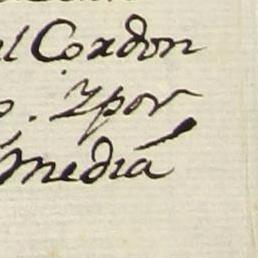 el Cordon
o. 2 por
media